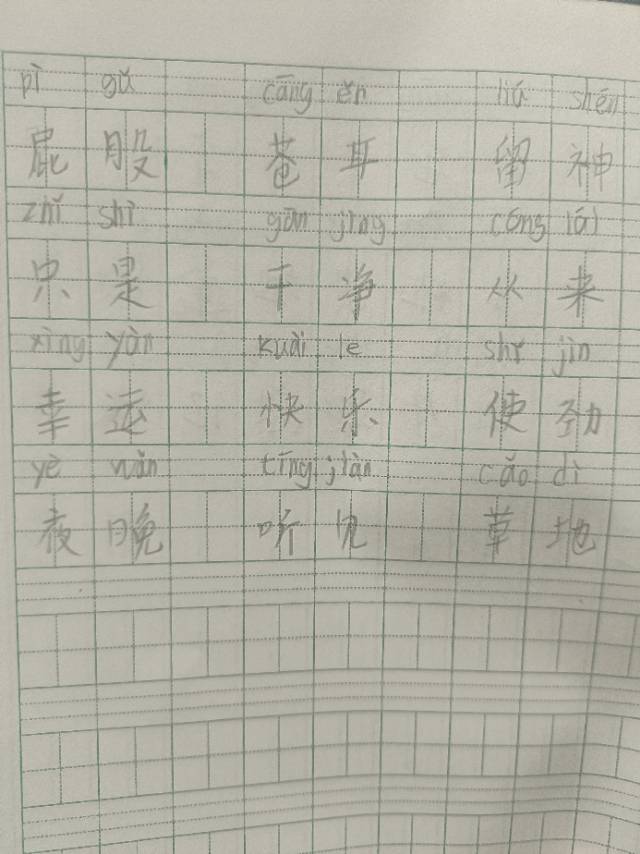 pì gǔ cāng ěr liú shén
屁 股 苍 耳 留 神
zhǐ shì gān jìng cóng lái
只 是 干 净 从 来
xìng yùn kuài le shǐ jìn
幸 运 快 乐 使 劲
yè wǎn tīng jiàn cǎo dì
夜 晚 听 见 草 地